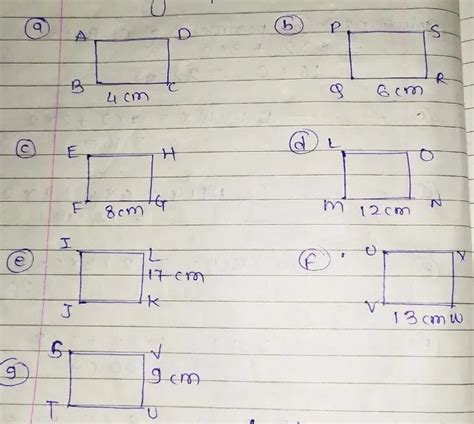 a b
A D P S
B 4 cm C Q 6 cm R
c d
E H L O
F 8 cm G M 12 cm N
e f
I L U V
17 cm
J K V 13 cm W
g
S V
9 cm
T U